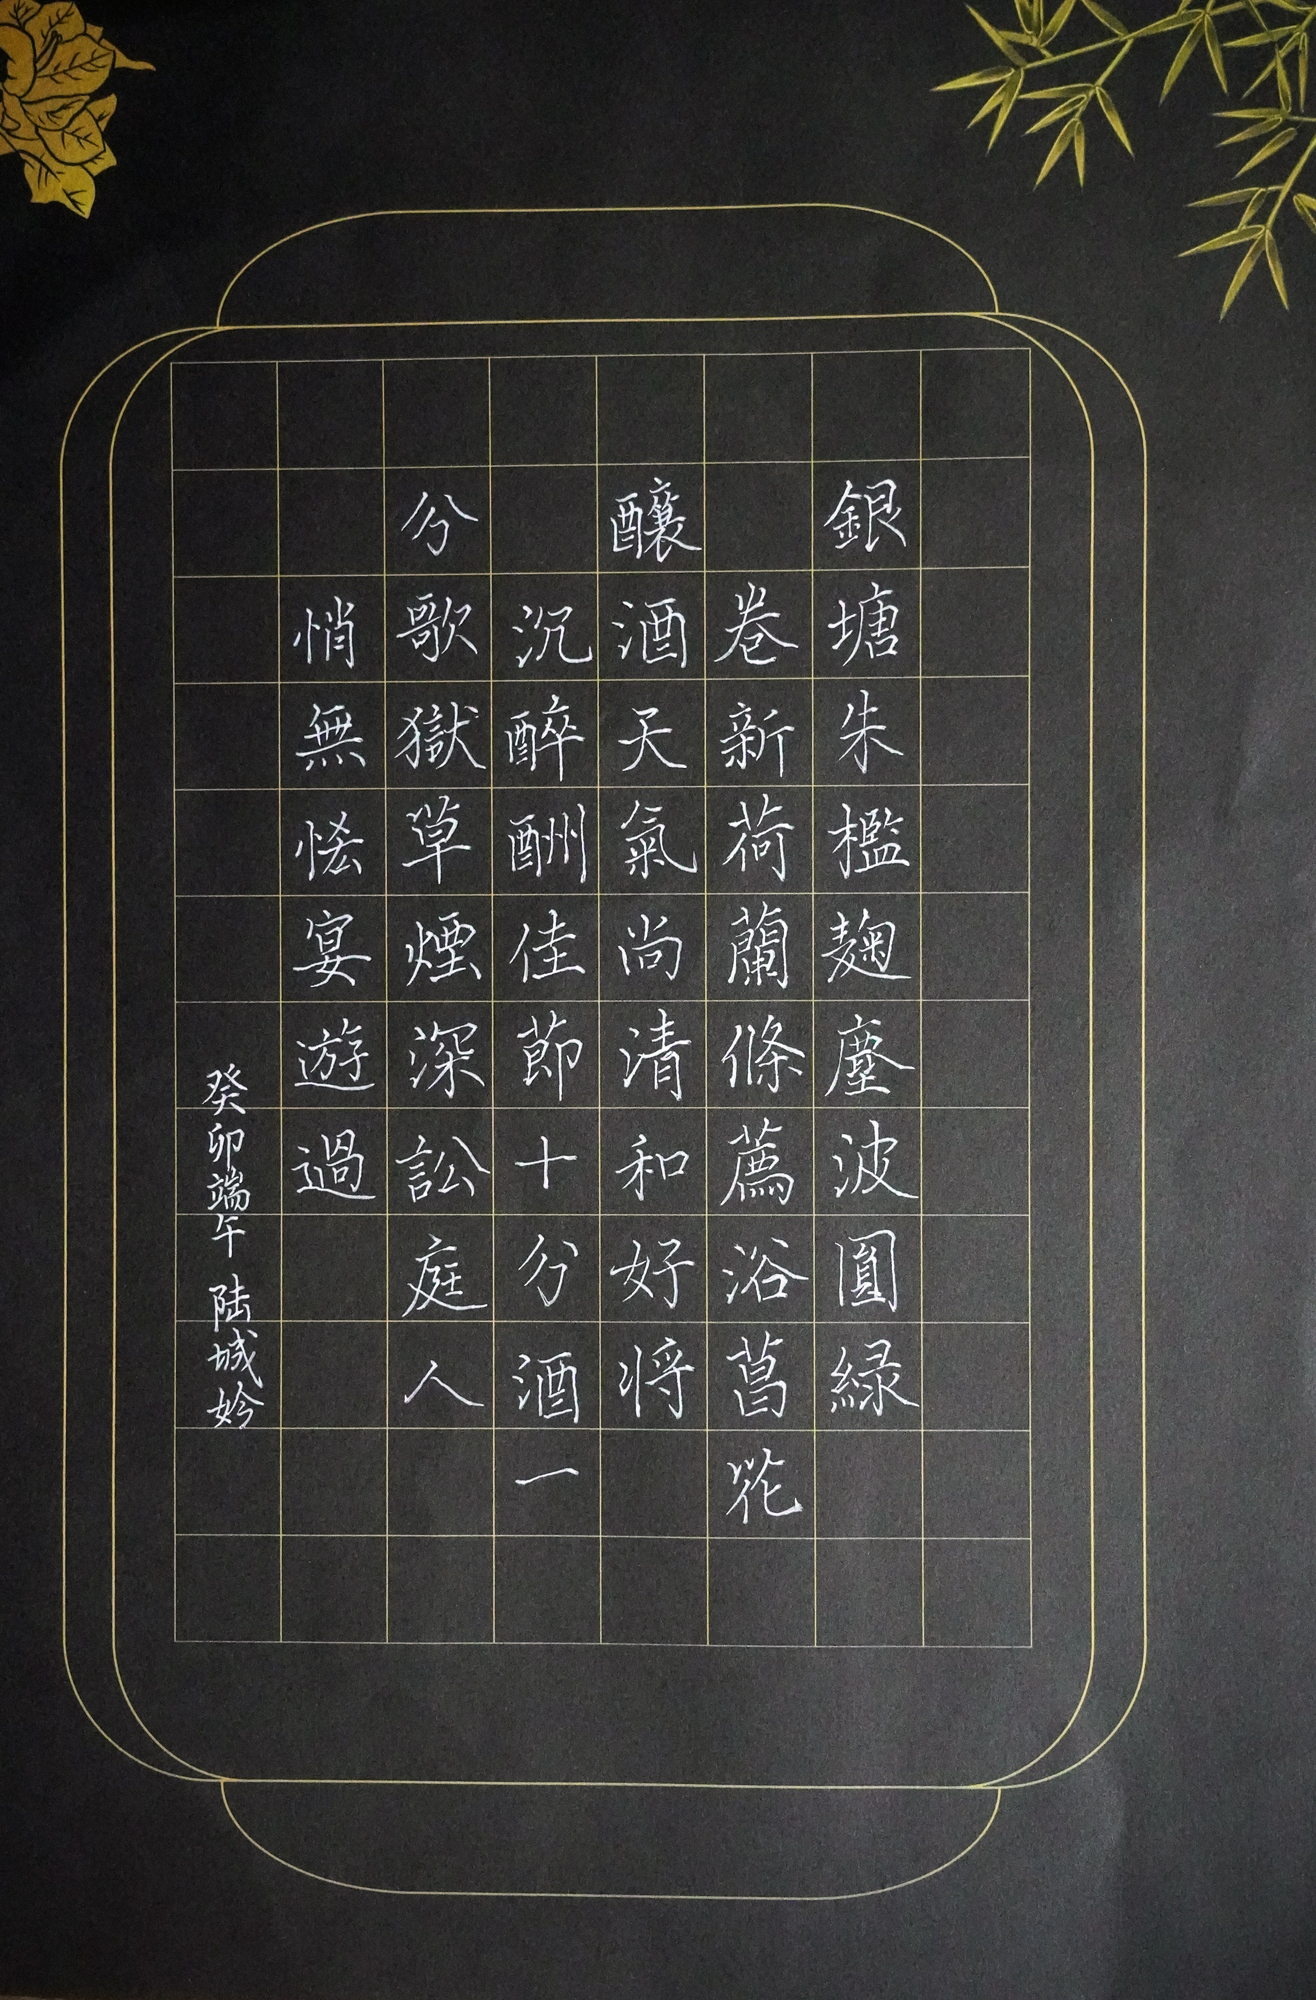 銀塘朱檻麹塵波圓緑
卷新荷蘭條薦浴菖花
醸酒天氣尚清和好将
沉醉酬佳節十分酒一
分歌獄草煙深訟庭人
悄無恡宴遊過
癸卯端午 陆城妗